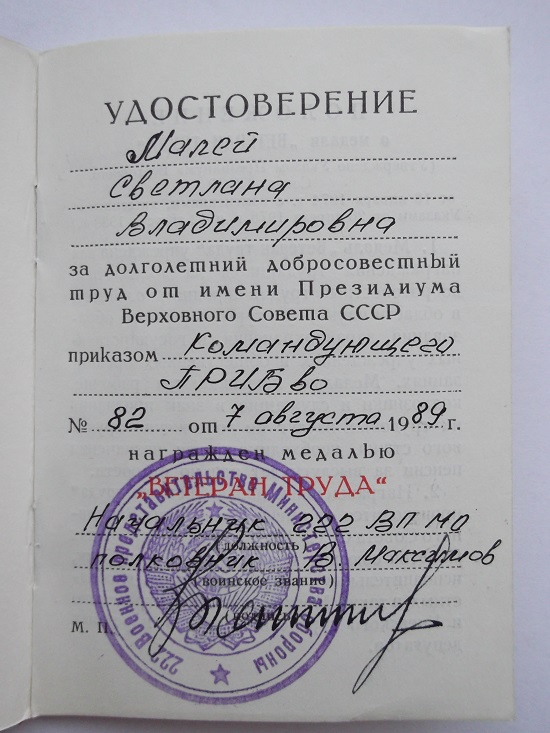 УДОСТОВЕРЕНИЕ
Малей
Светлана
Владимировна
за долголетний добросовестный
труд от имени Президиума
Верховного Совета СССР
приказом Командующего
ПРИБВО
№ 82 от 7 августа 1989 г.
награжден медалью
„ВЕТЕРАН ТРУДА“
Начальник 222 ВП МО
(должность)
полковник В. Максимов
(воинское звание)
М. П.
222 Военное представительство Министерства обороны